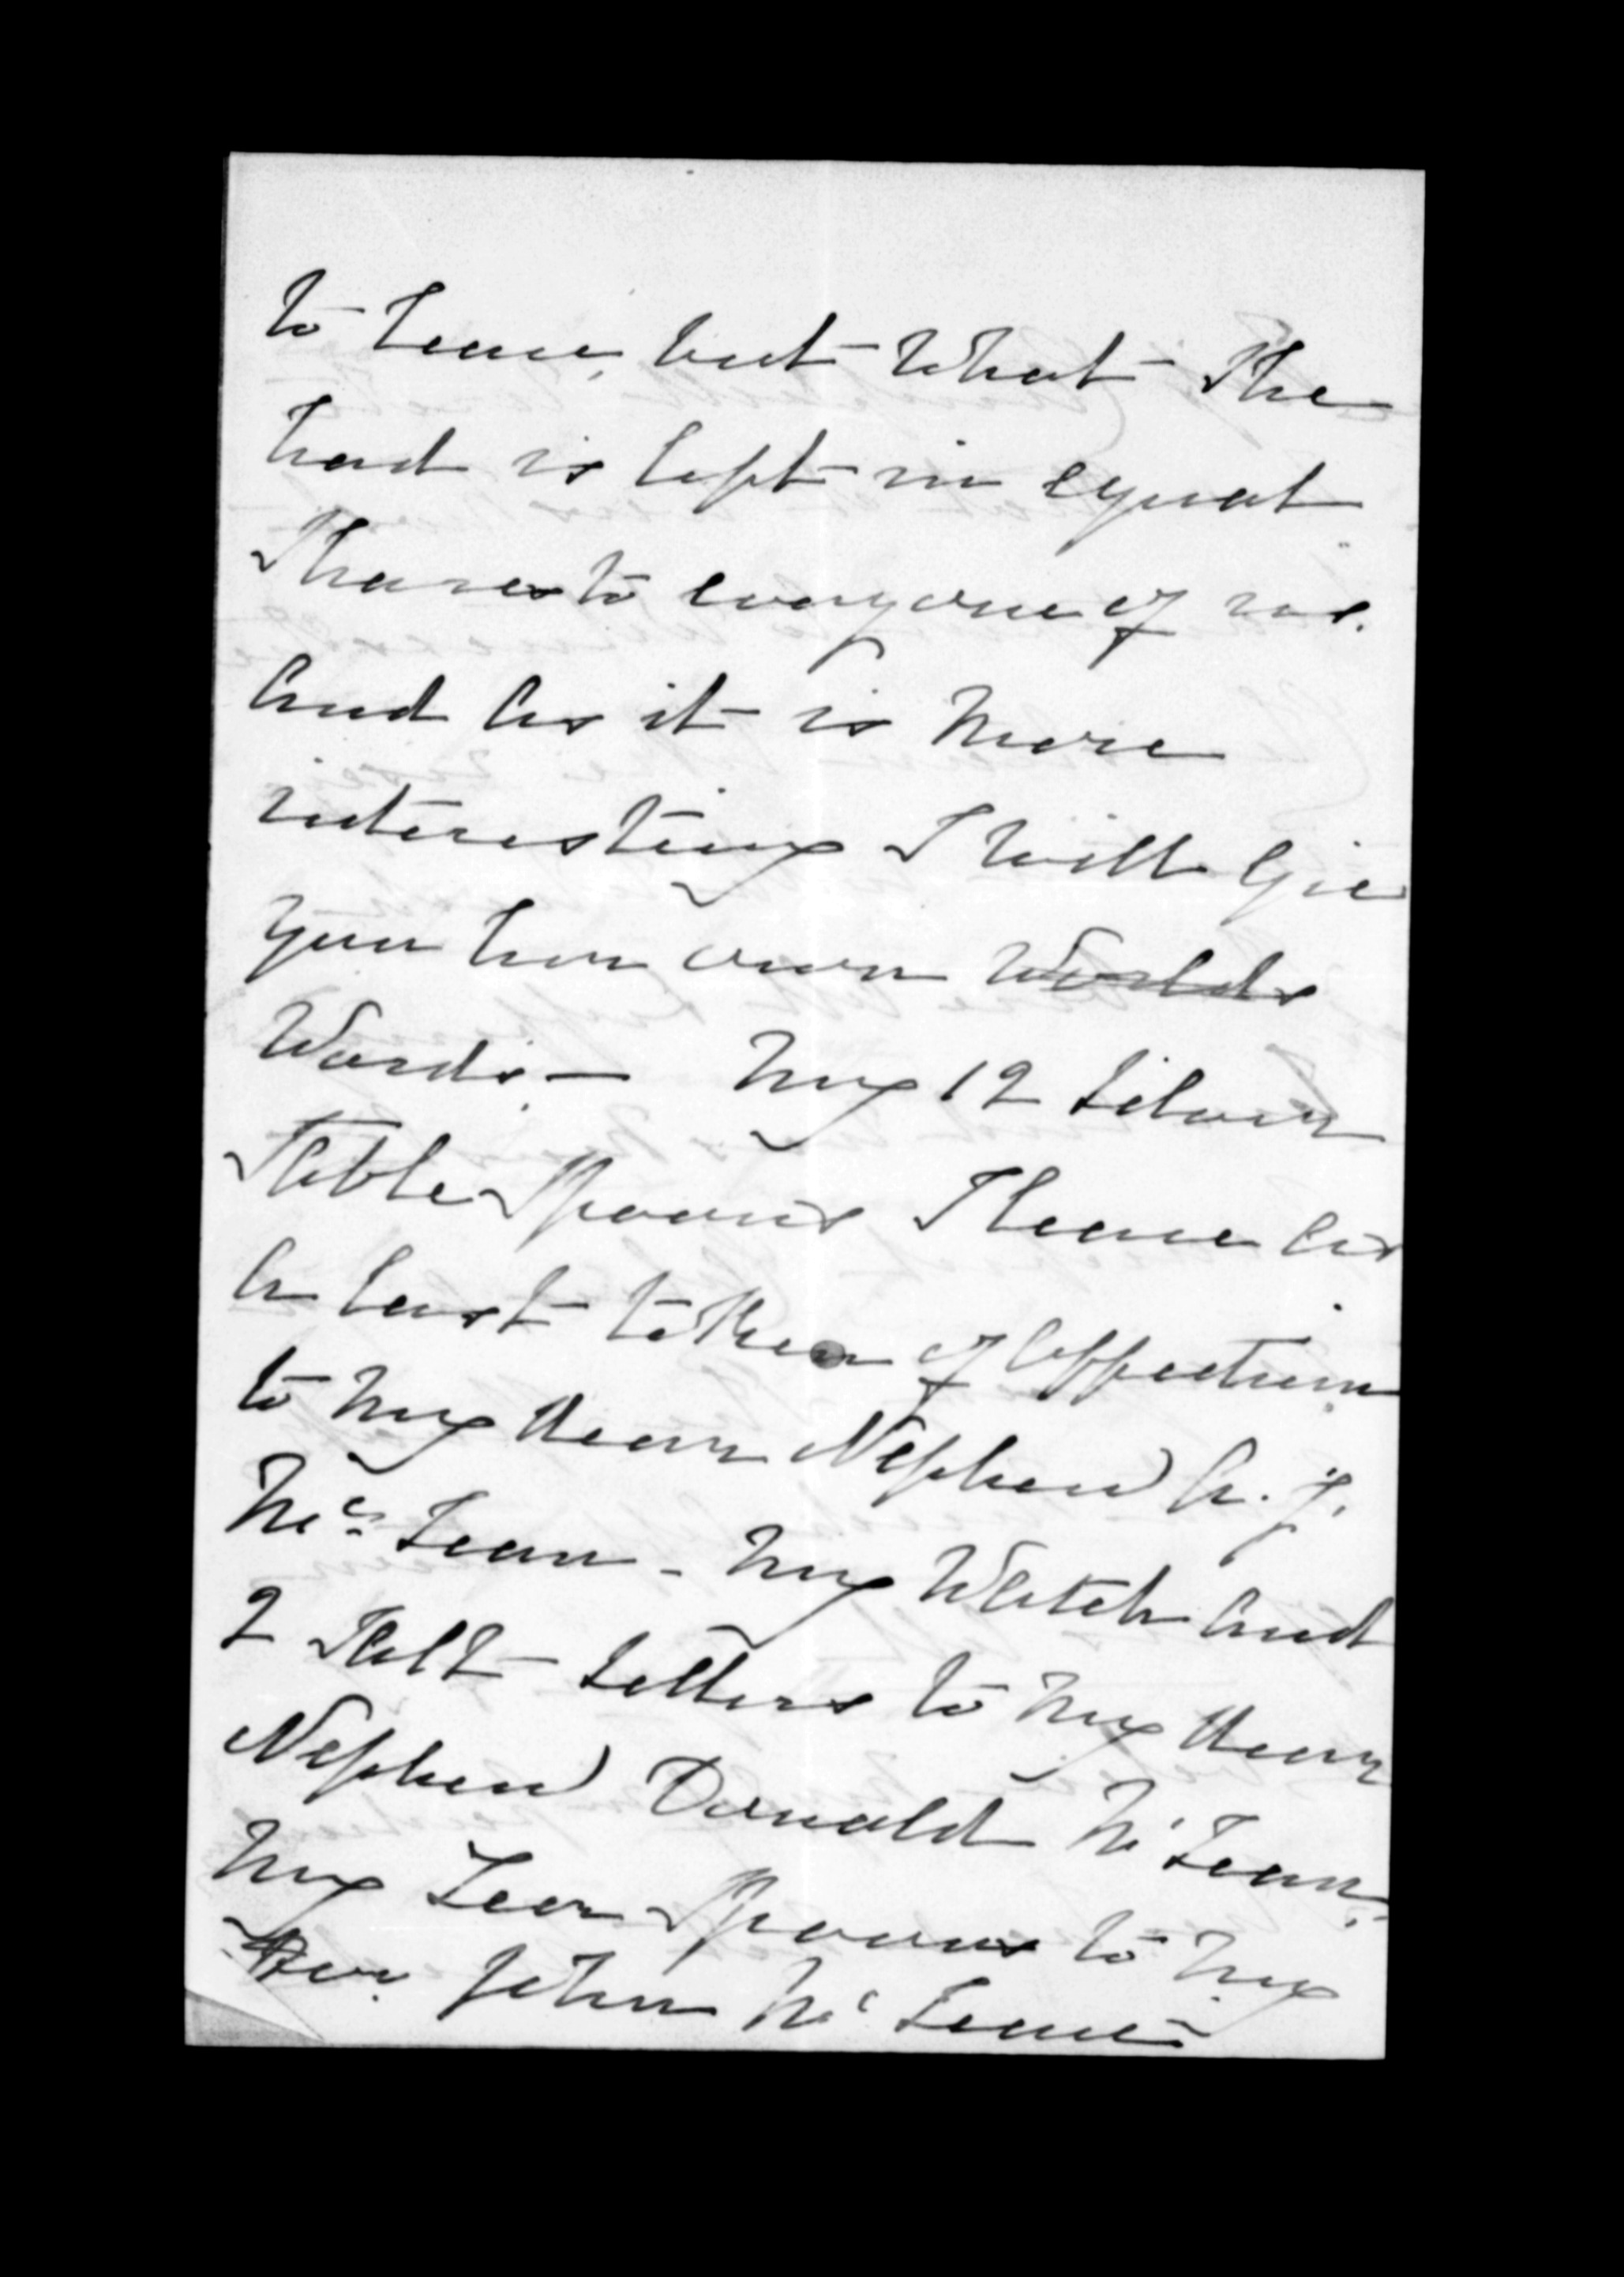 to leave, but what She
had is left in equal
Shares to everyone of us.
And As it is More
interesting I will Give
you her own Worlds
Words — My 12 Silver
Table Spoons I leave as
A last token of Affection
to My dear Nephew A. J.
McLean - My Watch And
2 Salt Sellers to My dear
Nephew Donald McLean.
My Tea Spoons to My
John McLean